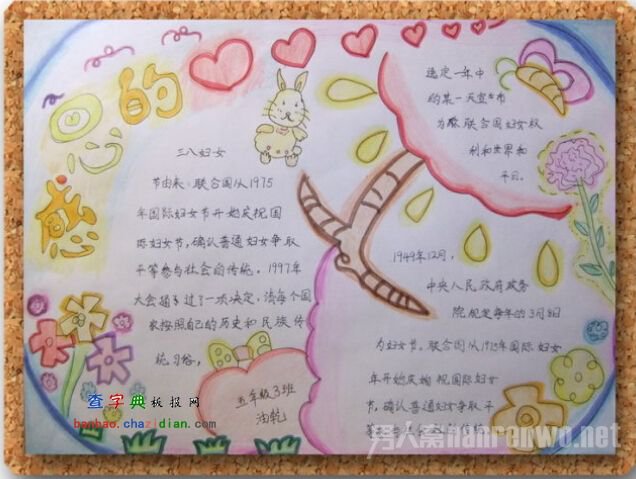 感恩的
三八妇女
节由来:联合国从1975
年国际妇女节开始庆祝国
际妇女节,确认普通妇女争取
平等参与社会的传统。1997年
大会通过了一项决议,请每个国
家按照自己的历史和民族传
统习俗,
选定一年中
的某一天宣布
为联合国妇女权
利和世界和
平日。
1949年12月,
中央人民政府政务
院规定每年的3月8日
为妇女节。联合国从1975年国际妇女
年开始庆祝国际妇女
节,确认普通妇女争取平
等参与社会的传统
五年级3班
油乾
查字典板报网
banbao.chazidian.com
男人窝nanrenwo.net